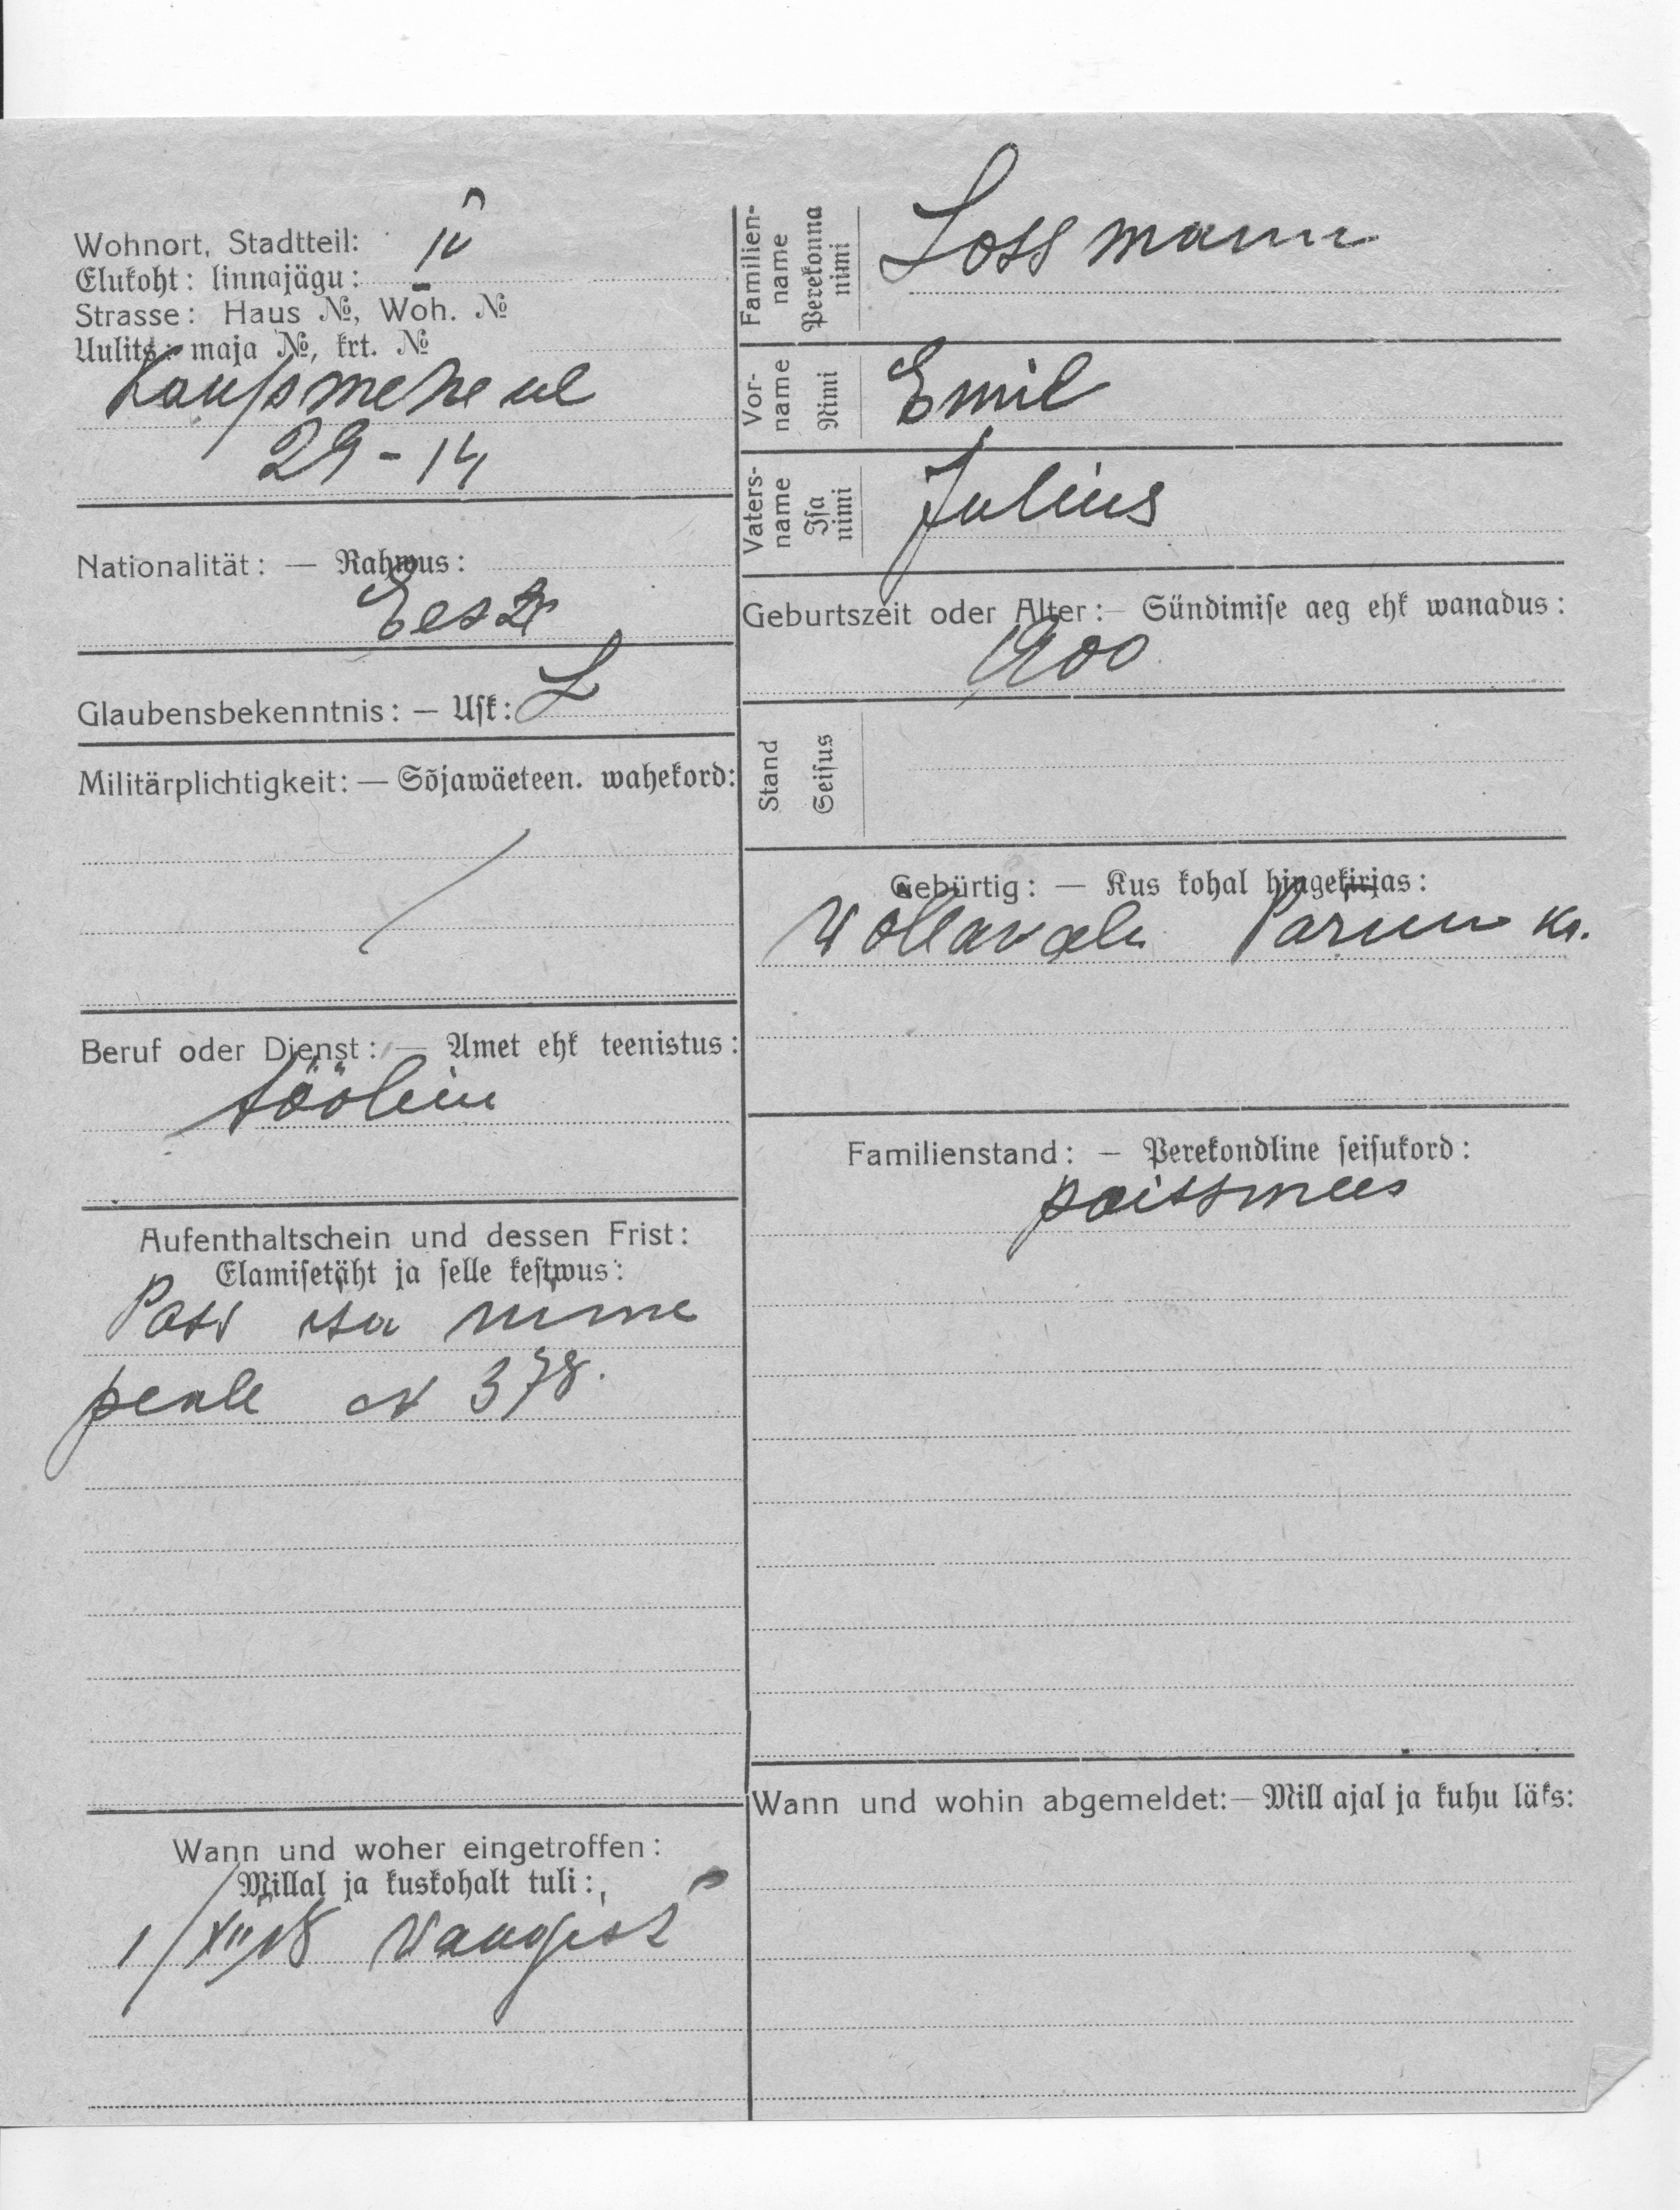 Wohnort, Stadtteil: IV
Elukoht: linnajägu:
Strasse: Haus №, Woh. №
Uulits: maja №, krt. №
Kaupmehe ul
29 - 14
Nationalität: — Rahwus:
Eesti
Glaubensbekenntnis: — Usk: L
Militärplichtigkeit: — Sõjawäeteen. wahekord:
Beruf oder Dienst: — Amet ehk teenistus:
tööline
Aufenthaltschein und dessen Frist:
Elamisetäht ja selle kestwus:
Pass isa nime
peale № 378.
Wann und woher eingetroffen:
Millal ja kuskohalt tuli:
1/XII 18
Familien-
name
Perekonna
nimi
Lossmann
Vor-
name
Nimi
Emil
Vaters-
name
Isa
nimi
Julius
Geburtszeit oder Alter: — Sündimise aeg ehk wanadus:
1900
Stand
Seisus
Gebürtig: — Kus kohal hingekirjas:
Pärnu kr.
Familienstand: — Perekondline seisukord:
poissmees
Wann und wohin abgemeldet: — Mill ajal ja kuhu läks: